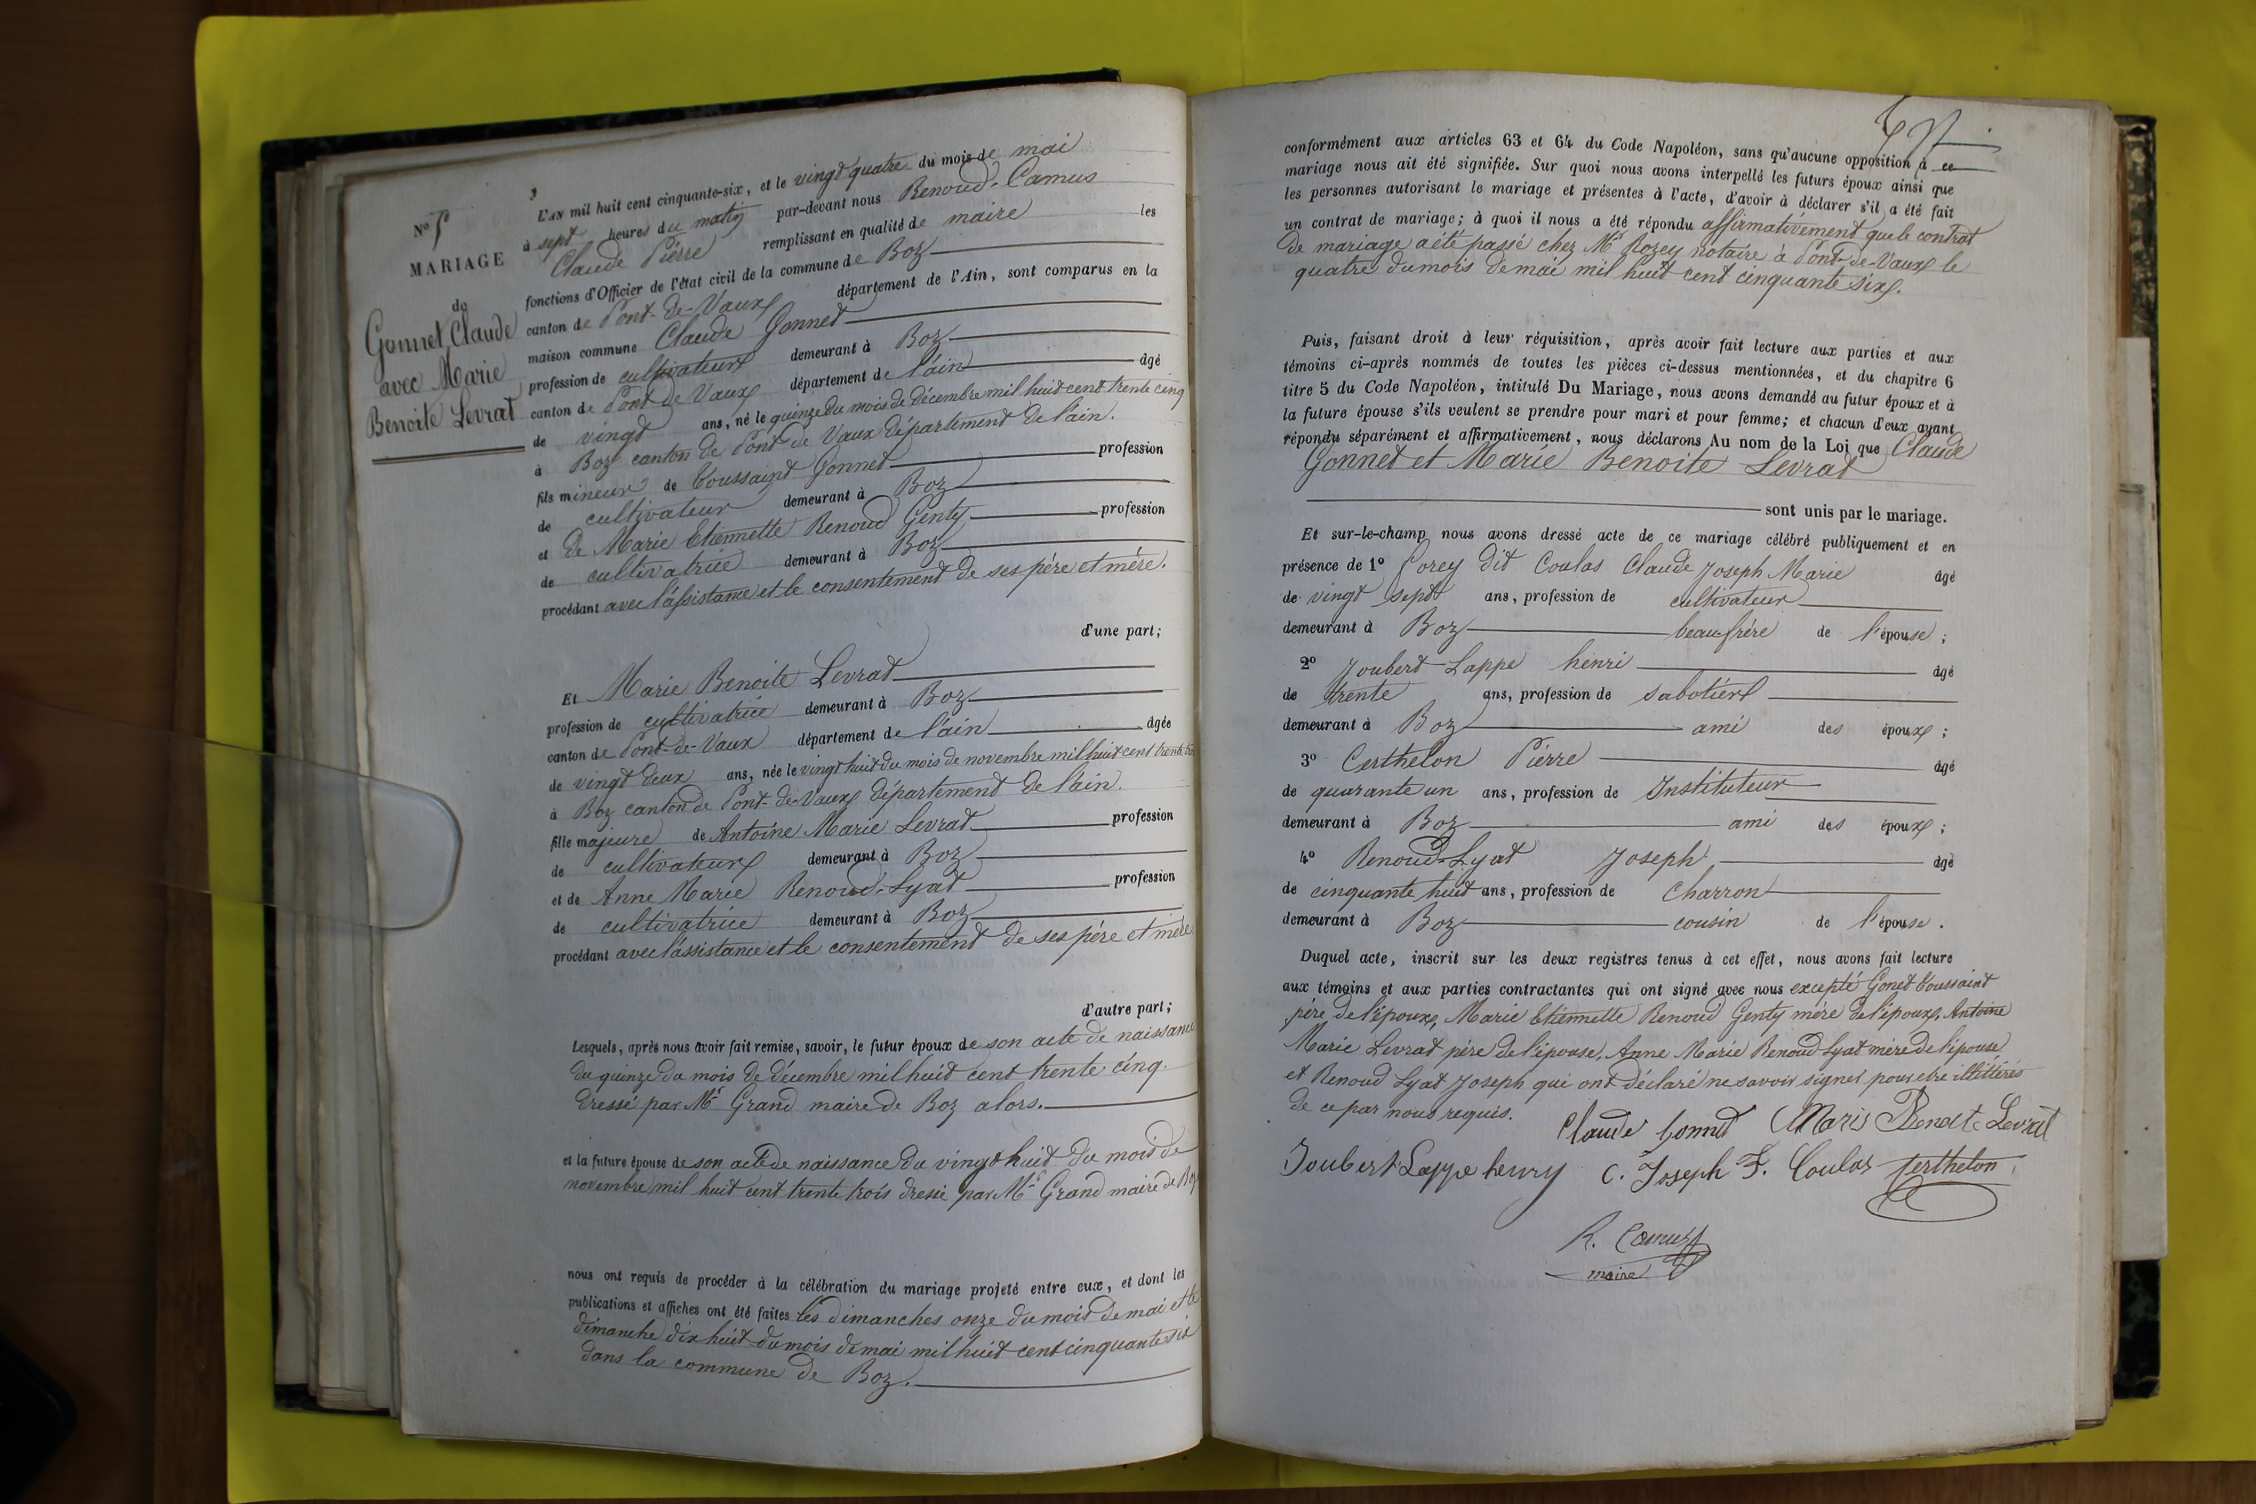 MARIAGE
de
Gonnet Claude
avec Marie
Benoite Levrat
L'AN mil huit cent cinquante-six, et le vingt quatre du mois de mai
à sept heures du matin par-devant nous Renoud-Camus
Claude Pierre remplissant en qualité de maire les
fonctions d'Officier de l'état civil de la commune de Boz
canton de Pont-de-Vaux département de l'Ain, sont comparus en la
maison commune Claude Gonnet
profession de cultivateur demeurant à Boz
canton de Pont de Vaux département de l'ain âgé
de vingt ans, né le quinze du mois de décembre mil huit cent trente cinq
à Boz canton de Pont de Vaux département de l'ain.
fils mineur de Toussaint Gonnet profession
de cultivateur demeurant à Boz
et de Marie Etiennette Renoud Genty profession
de cultivatrice demeurant à Boz
procédant avec l'assistance et le consentement de ses père et mère.
d'une part;
Et Marie Benoite Levrat
profession de cultivatrice demeurant à Boz
canton de Pont-de-Vaux département de l'ain âgée
de vingt deux ans, née le vingt huit du mois de novembre mil huit cent trente trois
à Boz canton de Pont-de-Vaux département de l'ain.
fille majeure de Antoine Marie Levrat profession
de cultivateur demeurant à Boz
et de Anne Marie Renoud-Lyat profession
de cultivatrice demeurant à Boz
procédant avec l'assistance et le consentement de ses père et mère
d'autre part;
Lesquels, après nous avoir fait remise, savoir, le futur époux de son acte de naissance
du quinze du mois de décembre mil huit cent trente cinq.
dressé par Mr Grand maire de Boz alors.
et la future épouse de son acte de naissance du vingt huit du mois de
novembre mil huit cent trente trois dressé par Mr Grand maire de Boz
nous ont requis de procéder à la célébration du mariage projeté entre eux, et dont les
publications et affiches ont été faites les dimanches onze du mois de mai et le
dimanche dix huit du mois de mai mil huit cent cinquante six
dans la commune de Boz.
conformément aux articles 63 et 64 du Code Napoléon, sans qu'aucune opposition à ce
mariage nous ait été signifiée. Sur quoi nous avons interpellé les futurs époux ainsi que
les personnes autorisant le mariage et présentes à l'acte, d'avoir à déclarer s'il a été fait
un contrat de mariage; à quoi il nous a été répondu affirmativement que le contrat
de mariage a été passé chez Mr Rozey notaire à Pont-de-Vaux le
quatre du mois de mai mil huit cent cinquante six.
Puis, faisant droit à leur réquisition, après avoir fait lecture aux parties et aux
témoins ci-après nommés de toutes les pièces ci-dessus mentionnées, et du chapitre 6
titre 5 du Code Napoléon, intitulé Du Mariage, nous avons demandé au futur époux et à
la future épouse s'ils veulent se prendre pour mari et pour femme; et chacun d'eux ayant
répondu séparément et affirmativement, nous déclarons Au nom de la Loi que Claude
Gonnet et Marie Benoite Levrat
sont unis par le mariage.
Et sur-le-champ nous avons dressé acte de ce mariage célébré publiquement et en
présence de 1° Forey dit Coulas Claude Joseph Marie âgé
de vingt sept ans, profession de cultivateur
demeurant à Boz beau frère de l'épouse;
2° Joubert Lappe henri âgé
de trente ans, profession de sabotier
demeurant à Boz ami des époux;
3° Certhelon Pierre âgé
de quarante un ans, profession de Instituteur
demeurant à Boz ami des époux;
4° Renoud-Lyat Joseph âgé
de cinquante huit ans, profession de Charron
demeurant à Boz cousin de l'épouse.
Duquel acte, inscrit sur les deux registres tenus à cet effet, nous avons fait lecture
aux témoins et aux parties contractantes qui ont signé avec nous excepté Gonet Toussaint
père de l'époux, Marie Etiennette Renoud Genty mère de l'époux, Antoine
Marie Levrat père de l'épouse, Anne Marie Renoud Lyat mère de l'épouse
et Renoud Lyat Joseph qui ont déclaré ne savoir signer pour etre illittérés
de ce par nous requis.
Claude Gonnet Marie Benoite Levrat
Joubert Lappe henry C. Joseph F. Coulas Certhelon
R. Camus
maire